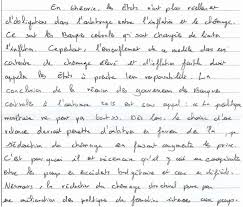 En théorie, les États n'ont plus réellement
d'obligation dans l'arbitrage entre l'inflation et le chômage.
Ce sont les Banques centrales qui sont chargées de limiter
l'inflation. Cependant, l'essoufflement de ce modèle dans un
contexte de chômage élevé et d'inflation faible doit
appeler les États à prendre leur responsabilité. La
conclusion de la réunion des gouverneurs de Banques
centrales à l'automne est sans appel : « La politique
monétaire ne peut pas tout ». Dès lors, le choix d'une
relance devrait permettre d'arbitrer en faveur de la
réduction du chômage en faisant augmenter les prix.
C'est pourquoi il est nécessaire qu'il y ait une
entre les pays excédents budgétaires et ceux déficits.
Néanmoins, la réduction du chômage structurel passe par
une de politique de formation interne aux pays.